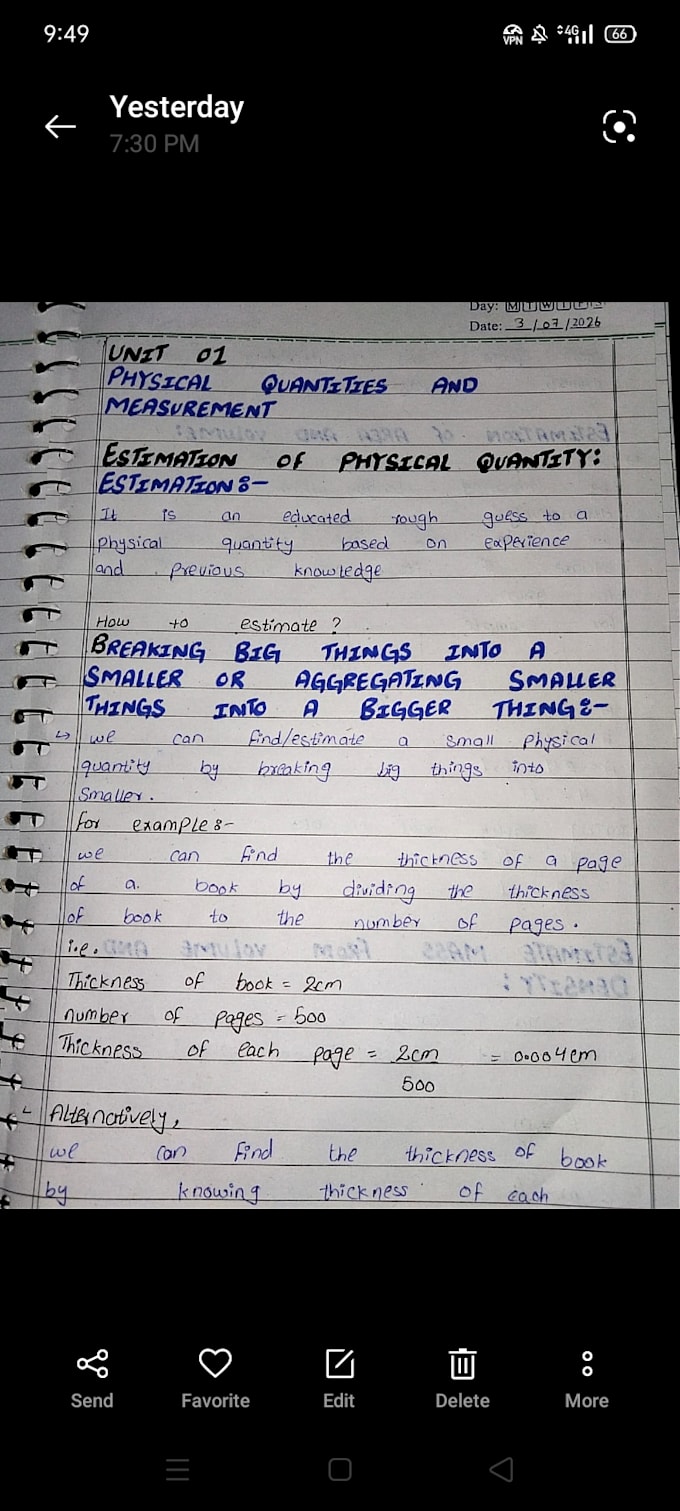 9:49
VPN 4G 66
Yesterday
7:30 PM
Day: M T W T F S
Date: 3/07/2026
UNIT 01
PHYSICAL QUANTITIES AND
MEASUREMENT
ESTIMATION OF AREA AND VOLUME:
ESTIMATION OF PHYSICAL QUANTITY:
ESTIMATION:-
It is an educated rough guess to a
physical quantity based on experience
and previous knowledge
How to estimate ?
BREAKING BIG THINGS INTO A
SMALLER OR AGGREGATING SMALLER
THINGS INTO A BIGGER THING:-
↳ we can find/estimate a small physical
quantity by breaking big things into
smaller.
for example:-
we can find the thickness of a page
of a. book by dividing the thickness
of book to the number of pages.
ESTIMATE MASS FROM VOLUME AND
i.e.
DENSITY:
Thickness of book = 2cm
number of pages = 500
Thickness of each page = 2cm = 0.004cm
500
Alternatively,
we can find the thickness of book
by knowing thickness of each
Send Favorite Edit Delete More